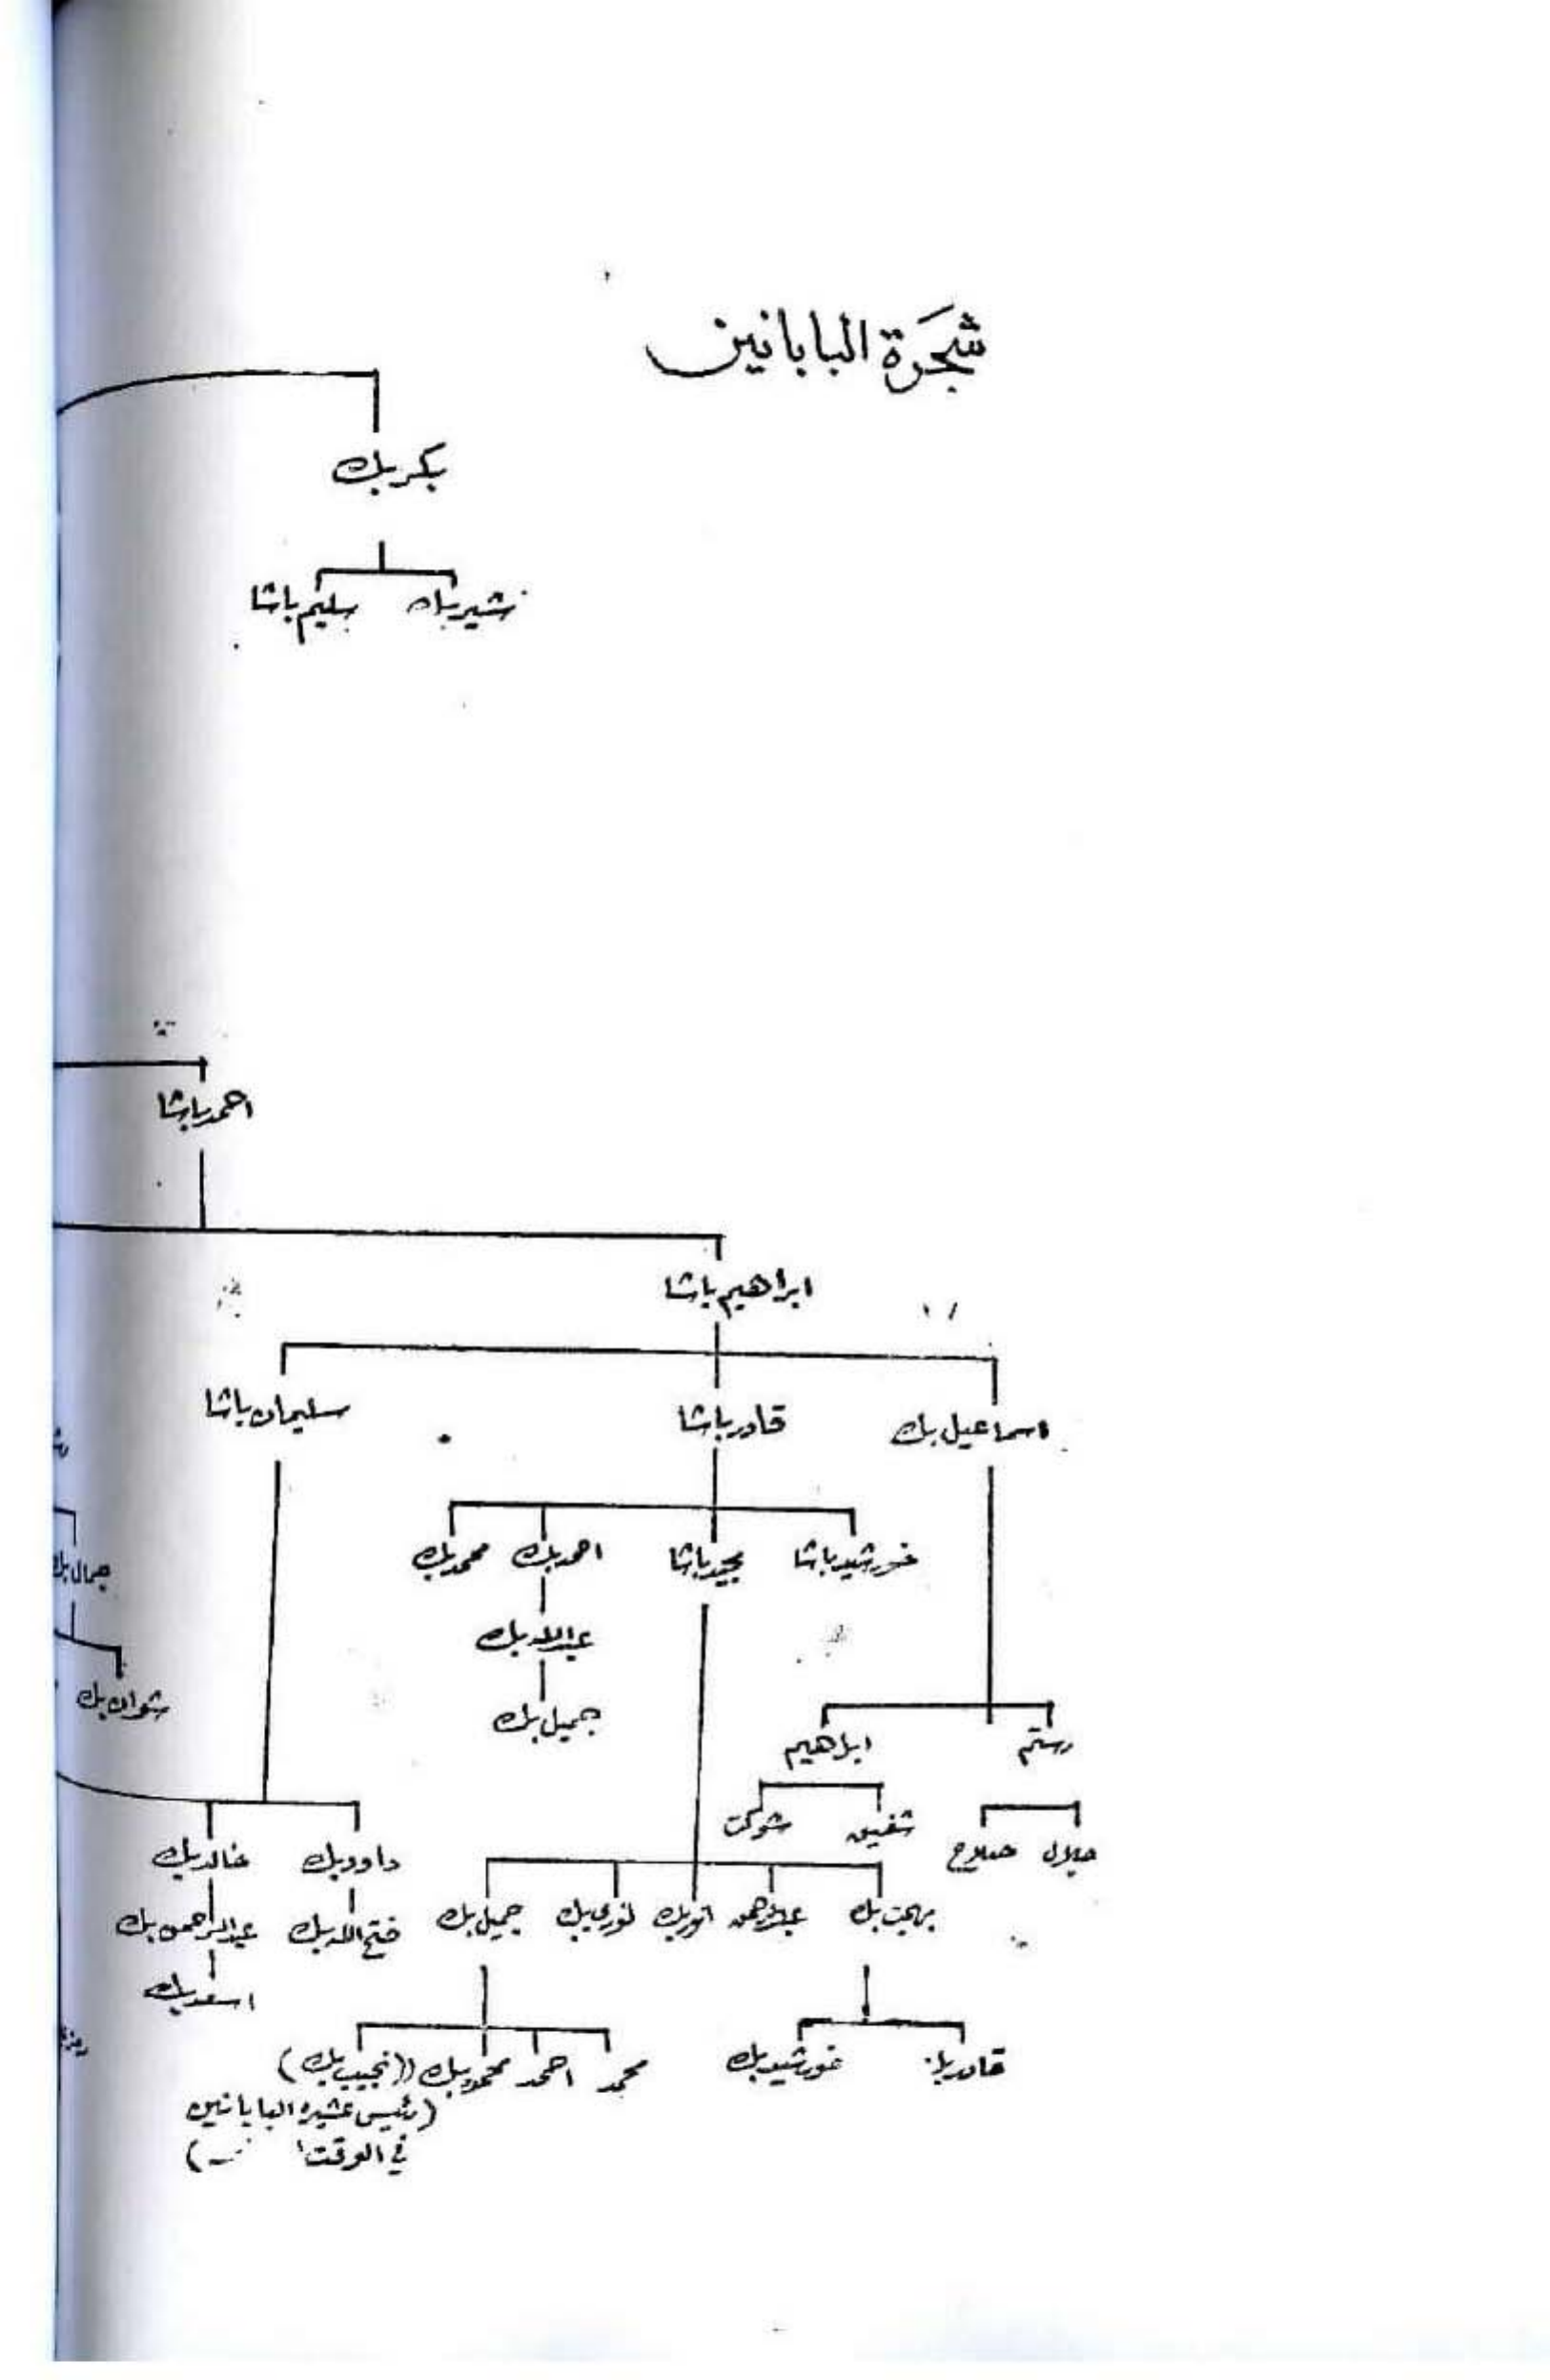 شجرة البابانيين
بكر بك
سليم باشا
احمد باشا
ابراهيم باشا
اسماعيل بك قادر باشا سليمان باشا
خورشيد باشا مجيد باشا احمد بك محمد بك
جمال بك
عبدالله بك
شوان بك
جميل بك
رستم ابراهيم
شفيق شوكت
جلال صلاح داود بك خالد بك
بهجت بك عبدالرحمن انور بك نوري بك جميل بك فتح الله بك عبدالرحمن بك
اسعد بك
خورشيد بك محمد احمد محمود بك ((نجيب بك)
(رئيس عشيره البابانين
في الوقت